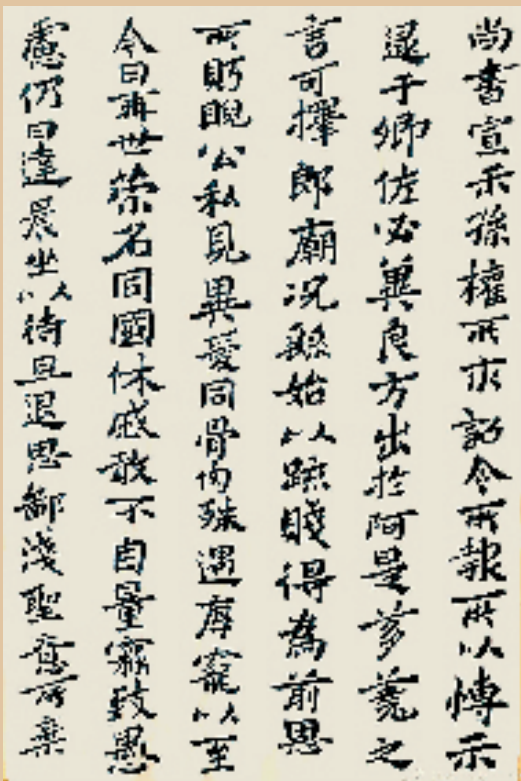 尚書宣示孫權所求詔令所報所以博示
逮于卿佐必冀良方出於阿是芻蕘之
言可擇郎廟況繇始以疏賤得為前恩
所眄睨公私見異愛同骨肉殊遇厚寵以至
今日再世榮名同國休慼敢不自量竊致愚
慮仍日達晨坐以待旦退思鄙淺聖意所棄